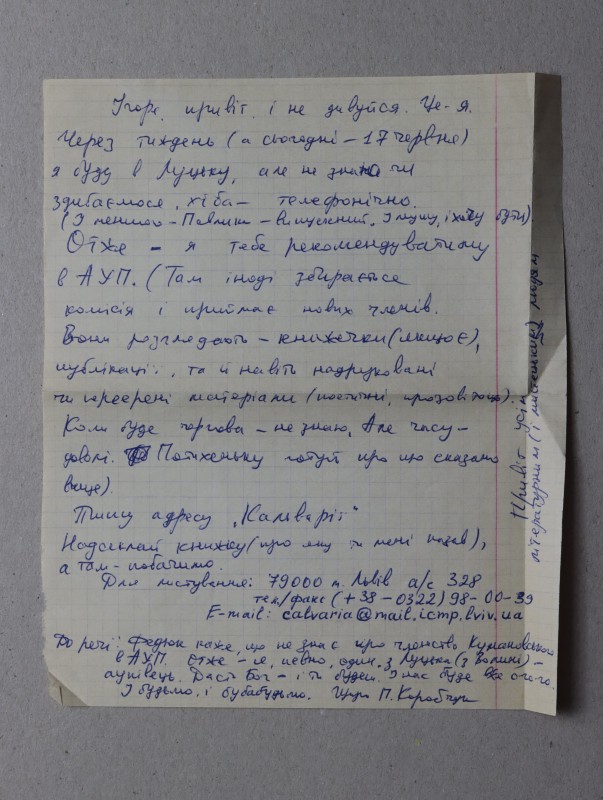 Ігоре, привіт, і не дивуйся. Це-я.
Через тиждень (а сьогодні - 17 червня)
я буду в Луцьку, але не знаю чи
здибаємося, хіба - телефонічно.
(І меншою - Павлик - випускний, і хочу бути).
Отже - я тебе рекомендуватиму
в АУП. (Там іноді збирається
комісія і приймає нових членів.
Вони розглядають - книжечки (якщо є),
публікації, та й навіть надруковані
чи ксерені матеріали (поетичні, прозові тощо).
Коли буде чергова - не знаю, Але часу -
доволі. Потихеньку готуй про що сказано
вище).
Пишу адресу „Кальварії"
Надсилай книжку (про яку ти мені казав),
а там - побачимо.
Для листування: 79000 м. Львів а/с 328
тел/факс (+38-0322) 98-00-39
E-mail: calvaria@mail.icmp.lviv.ua
До речі, Федюк каже, що не знає про членство Кумановського
в АУП. Отже - я, певно, один з Луцька (з Волині) -
аупівець. Дасть Бог - і ти будеш. І нас буде вже
І будьмо, і бубабудьмо. Щиро П. Коробчук
Привіт усім
літературним (і мистецьким) людям